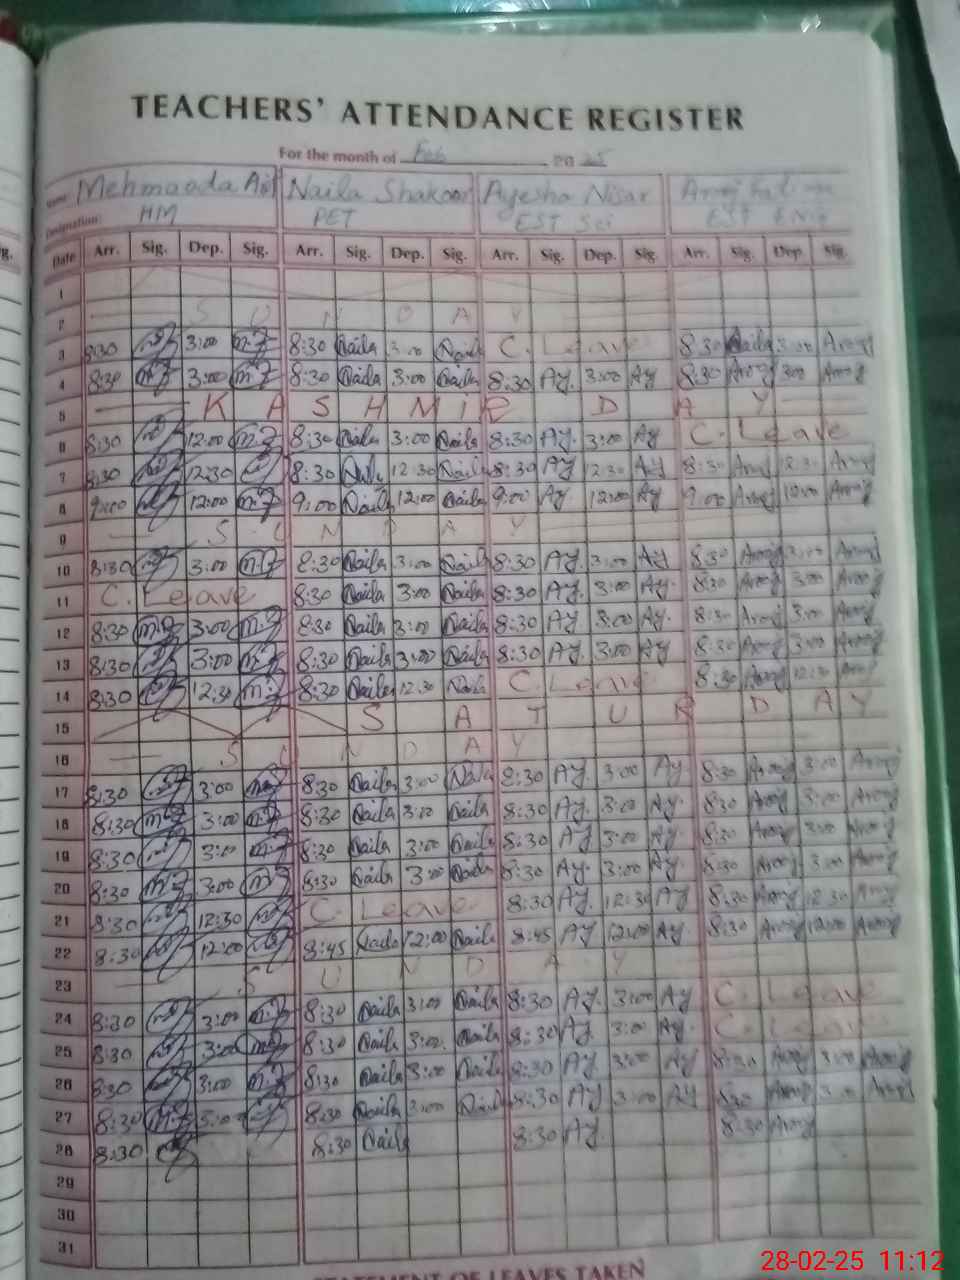 TEACHERS' ATTENDANCE REGISTER
For the month of Feb 20 25
Name: Mehmooda Naila Shakoor Ayesha Nisar
Designation: HM PET EST Sci EST ENG
Date Arr. Sig. Dep. Sig. Arr. Sig. Dep. Sig. Arr. Sig. Dep. Sig. Arr. Sig. Dep. Sig.
1
2 S U N D A Y
3 8:30 3:00 8:30 Naila 3:00 Naila C. Leave 8:30 3:00 Arooj
4 8:30 3:00 8:30 Naila 3:00 Naila 8:30 AY. 3:00 AY 8:30 Arooj 3:00 Arooj
5 K A S H M I R D A Y
6 8:30 12:00 8:30 Naila 3:00 Naila 8:30 AY. 3:00 AY C. Leave
7 8:30 12:30 8:30 Naila 12:30 Naila 8:30 AY 12:30 AY 8:30 Arooj 12:30 Arooj
8 9:00 12:00 9:00 Naila 12:00 Naila 9:00 AY 12:00 AY 9:00 Arooj Arooj
9 S U N D A Y
10 8:30 3:00 8:30 Naila 3:00 Naila 8:30 AY. 3:00 AY 8:30 Arooj 3:00 Arooj
11 C. Leave 8:30 Naila 3:00 Naila 8:30 AY. 3:00 AY. 8:30 Arooj 3:00 Arooj
12 8:30 3:00 8:30 Naila 3:00 Naila 8:30 AY 3:00 AY. 8:30 Arooj 3:00 Arooj
13 8:30 3:00 8:30 Naila 3:00 Naila 8:30 AY. 3:00 AY 8:30 Arooj 3:00 Arooj
14 8:30 12:30 8:30 Naila 12:30 Naila C. Leave 8:30 Arooj 12:30 Arooj
15 S A T U R D A Y
16 S U N D A Y
17 8:30 3:00 8:30 Naila 3:00 Naila 8:30 AY. 3:00 AY. 8:30 Arooj 3:00 Arooj
18 8:30 3:00 8:30 Naila 3:00 Naila 8:30 AY. 3:00 AY. 8:30 Arooj 3:00 Arooj
19 8:30 3:00 8:30 Naila 3:00 Naila 8:30 AY 3:00 AY. 8:30 Arooj 3:00 Arooj
20 8:30 3:00 8:30 Naila 3:00 Naila 8:30 AY. 3:00 AY. 8:30 Arooj 3:00 Arooj
21 8:30 12:30 C. Leave 8:30 AY. 12:30 AY 8:30 Arooj 12:30 Arooj
22 8:30 12:00 8:45 Naila 12:00 Naila 8:45 AY 12:00 AY. 8:30 Arooj 12:00 Arooj
23 S U N D A Y
24 8:30 3:00 8:30 Naila 3:00 Naila 8:30 AY. 3:00 AY C. Leave
25 8:30 3:00 8:30 Naila 3:00. Naila 8:30 AY. 3:00 AY. C. Leave
26 8:30 3:00 8:30 Naila 3:00 Naila 8:30 AY 3:00 AY 8:30 Arooj 3:00 Arooj
27 8:30 3:00 8:30 Naila 3:00 Naila 8:30 AY 3:00 AY 8:30 Arooj 3:00 Arooj
28 8:30 8:30 Naila 8:30 AY. 8:30 Arooj
29
30
31
STATEMENT OF LEAVES TAKEN
28-02-25 11:12